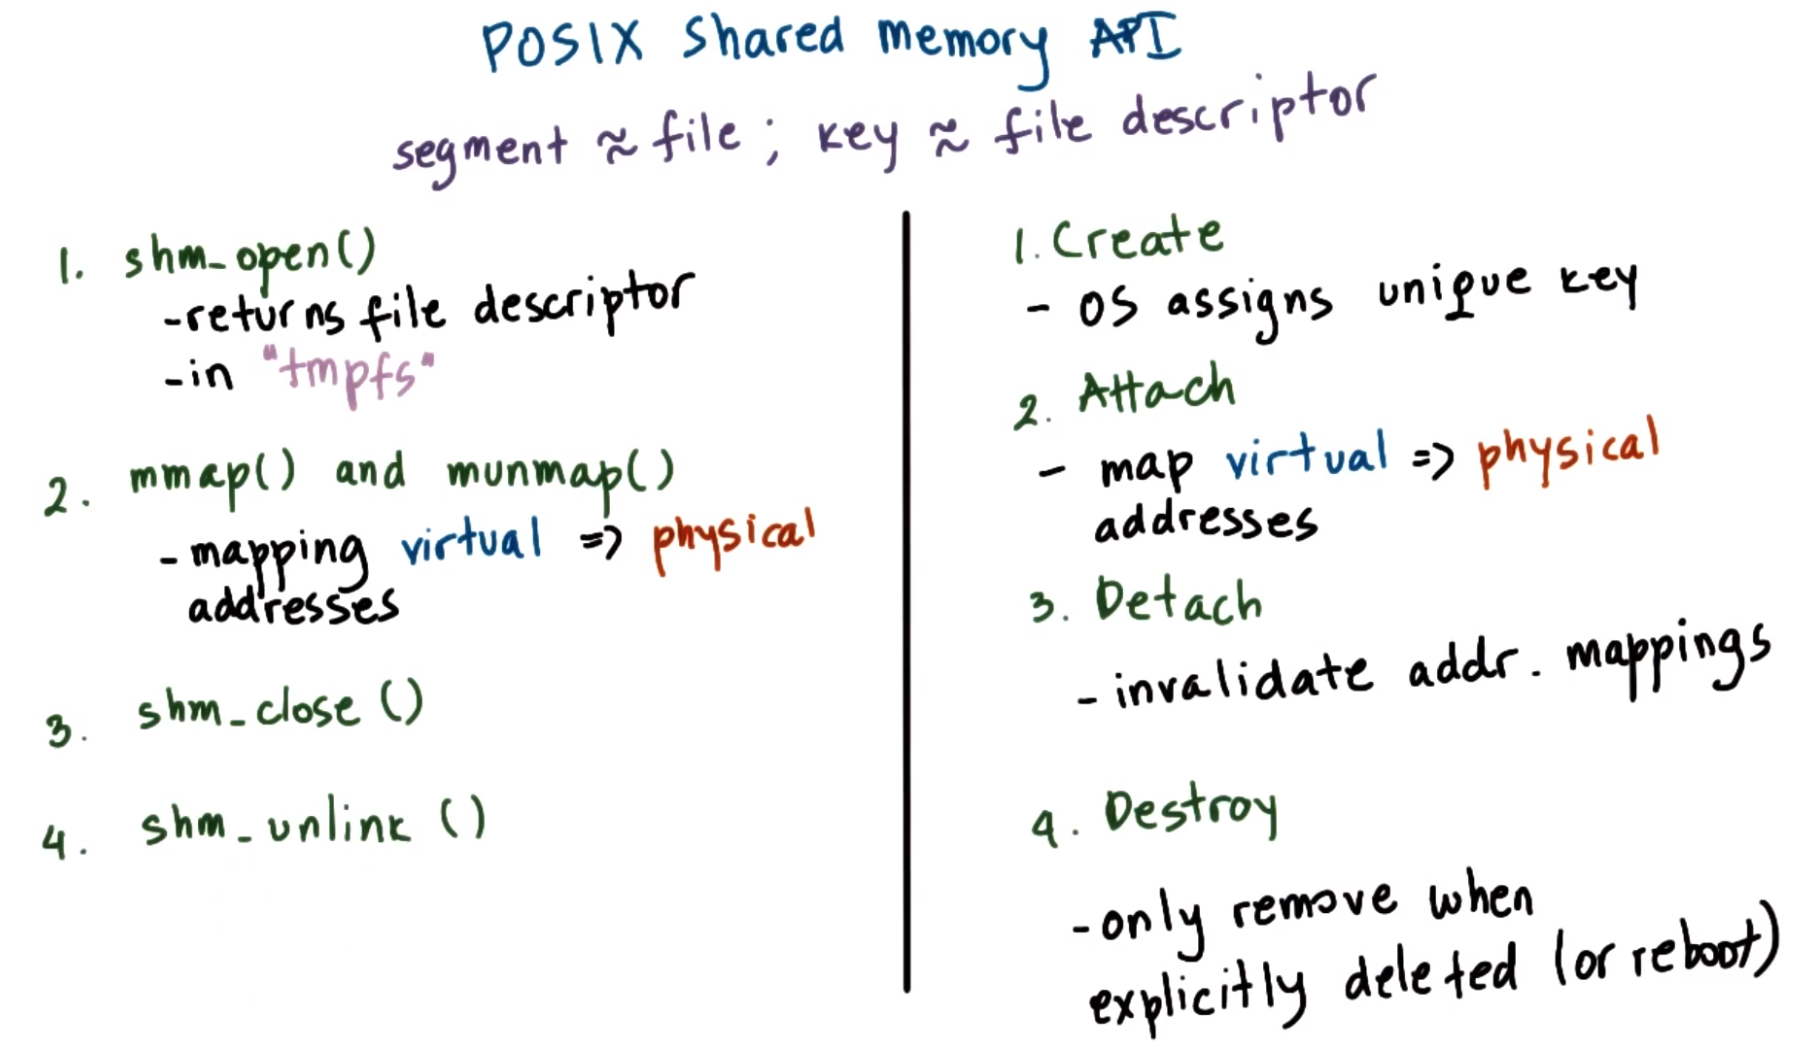 POSIX Shared Memory API
segment ≈ file ; key ≈ file descriptor
1. shm_open()
-returns file descriptor
-in "tmpfs"
2. mmap() and munmap()
- mapping virtual => physical
addresses
3. shm_close ()
4. shm_unlink ()
1. Create
- OS assigns unique key
2. Attach
- map virtual => physical
addresses
3. Detach
- invalidate addr. mappings
4. Destroy
-only remove when
explicitly deleted (or reboot)